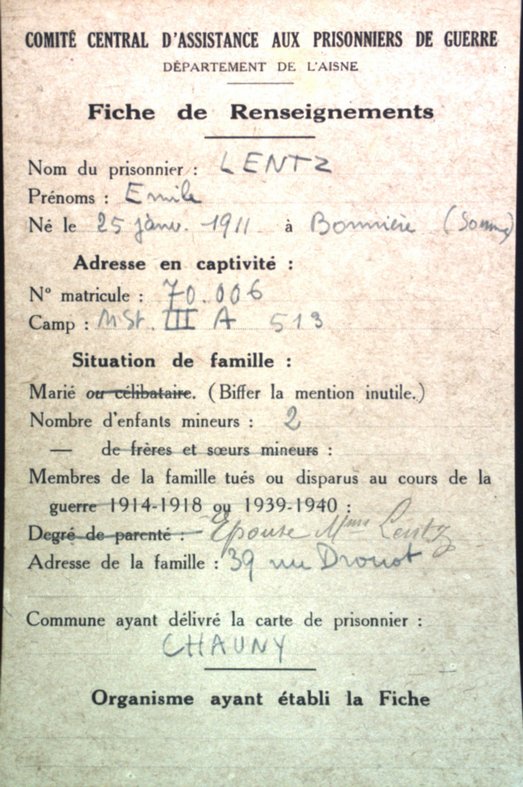 COMITÉ CENTRAL D'ASSISTANCE AUX PRISONNIERS DE GUERRE
DÉPARTEMENT DE L'AISNE
Fiche de Renseignements
Nom du prisonnier : LENTZ
Prénoms : Emile
Né le 25 janv. 1911 à Bonnière (Somme)
Adresse en captivité :
N° matricule : 70.006
Camp : MSt. III A 513
Situation de famille :
Marié ou célibataire. (Biffer la mention inutile.)
Nombre d'enfants mineurs : 2
— de frères et sœurs mineurs :
Membres de la famille tués ou disparus au cours de la
guerre 1914-1918 ou 1939-1940 :
Degré de parenté : Epouse Mme Lentz
Adresse de la famille : 39 rue Drouot
Commune ayant délivré la carte de prisonnier :
CHAUNY
Organisme ayant établi la Fiche